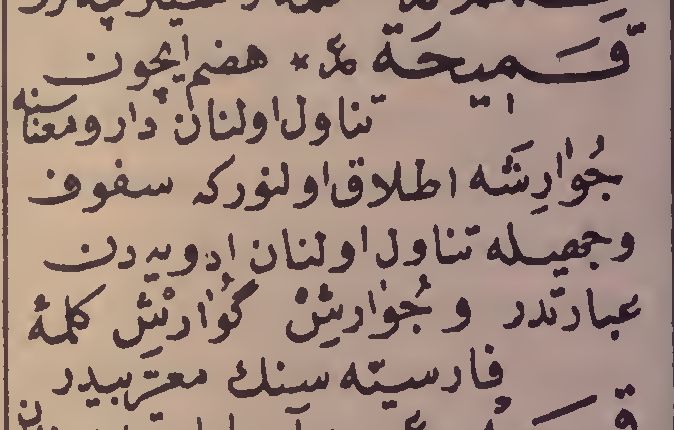 قَمِيحَة ع * هضم ايچون
تناول اولنان دارو معناسنه
جُوَارِشَه اطلاق اولنور كه سفوف
وجميله تناول اولنان ادويه دن
عبارتدر و جُوَارِشْ گُوَارِشْ كلمهٔ
فارسيّه سنك معرّبيدر